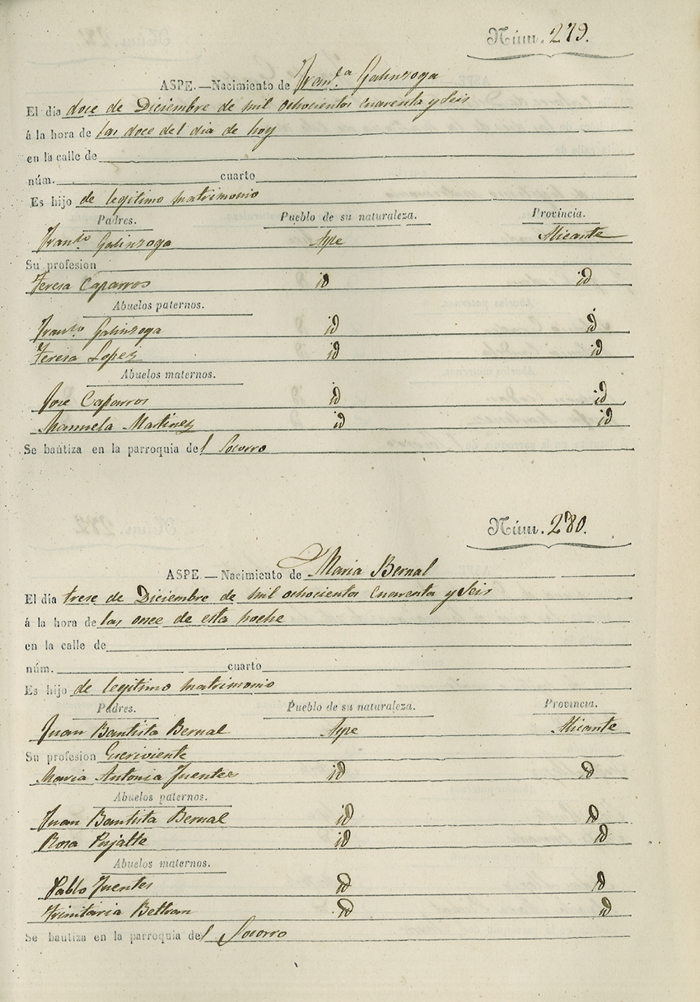 Núm. 279.
ASPE.—Nacimiento de Franc.ª Galinsoga
El dia doce de Diciembre de mil ochocientos cuarenta y seis
á la hora de las doce del dia de hoy
en la calle de
núm. cuarto
Es hijo de legitimo matrimonio
Padres. Pueblo de su naturaleza. Provincia.
Franco Galinsoga Aspe Alicante
Su profesion
Teresa Caparros id id
Abuelos paternos.
Franco Galinsoga id id
Teresa Lopez id id
Abuelos maternos.
Jose Caparros id id
Manuela Martinez id id
Se bautiza en la parroquia del Socorro
Núm. 280.
ASPE.—Nacimiento de Maria Bernal
El dia trese de Diciembre de mil ochocientos cuarenta y seis
á la hora de las once de esta noche
en la calle de
núm. cuarto
Es hijo de legitimo matrimonio
Padres. Pueblo de su naturaleza. Provincia.
Juan Bautista Bernal Aspe Alicante
Su profesion Escriviente
Maria Antonia Fuentes id id
Abuelos paternos.
Juan Bautista Bernal id id
Rosa Pujalte id id
Abuelos maternos.
Pablo Fuentes id id
Trinitaria Beltran id id
Se bautiza en la parroquia del Socorro